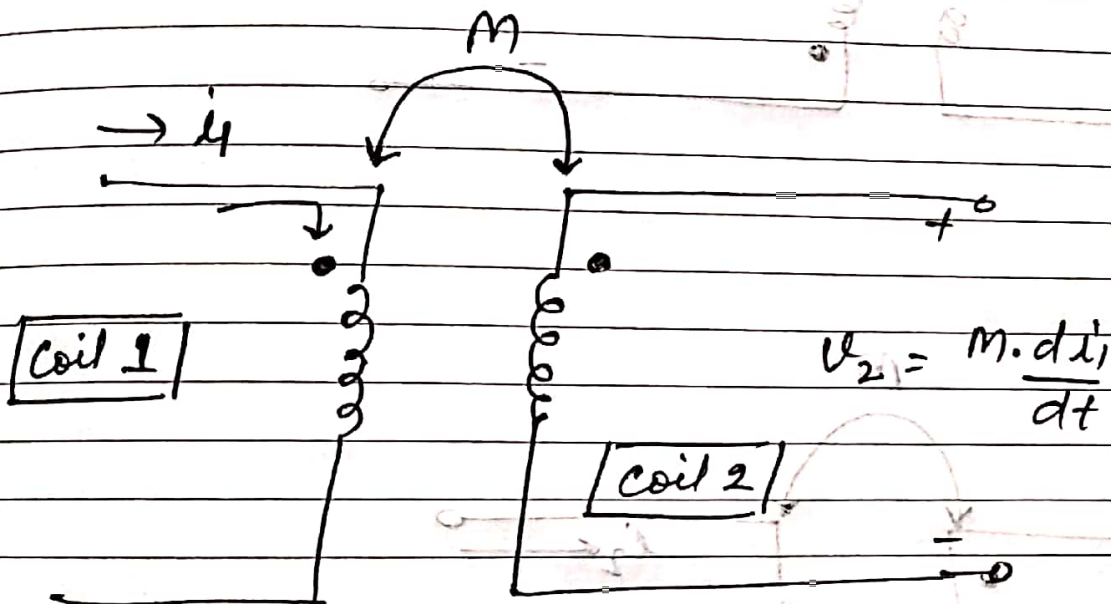 M
→ i₁
+
coil 1
v₂ = M. di₁/dt
coil 2
−